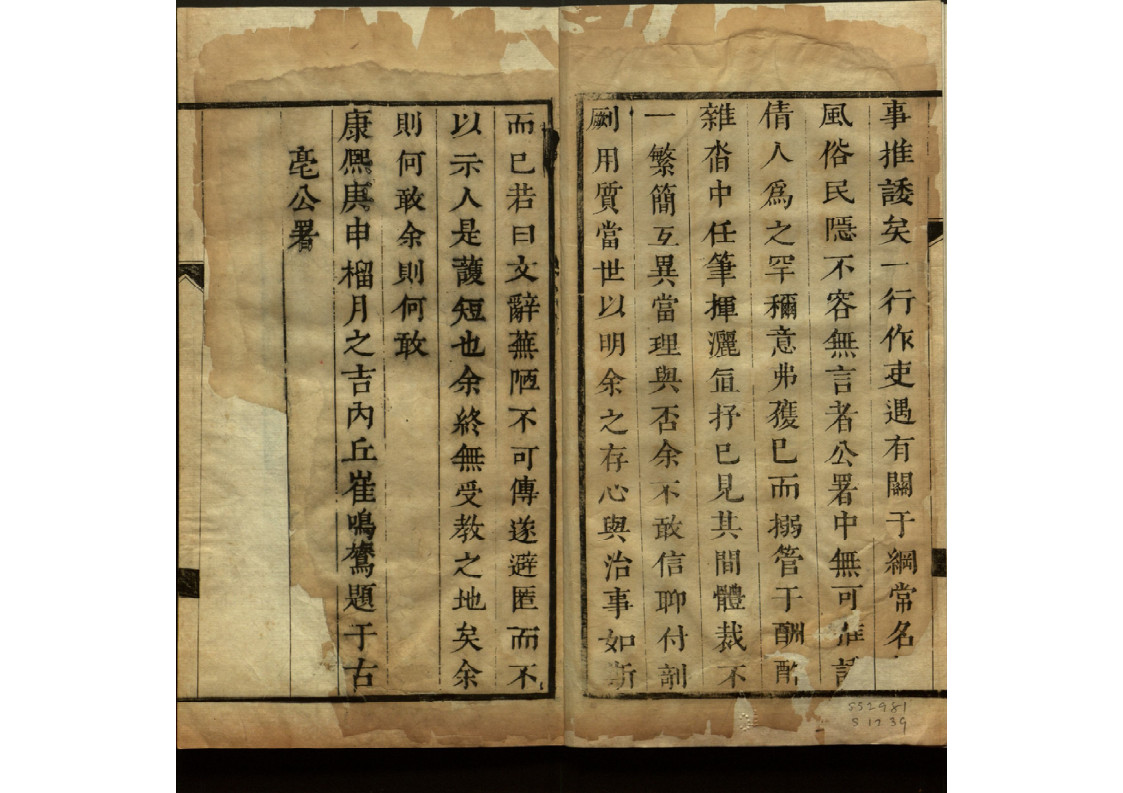 事推諉矣一行作吏遇有關于綱常名
風俗民隱不容無言者公署中無可推諉
倩人為之罕穪意弗獲已而搦管于酬酢
雜沓中任筆揮灑直抒已見其間體裁不
一繁簡互異當理與否余不敢信聊付剖
劂用質當世以明余之存心與治事如斯
而已若曰文辭蕪陋不可傳遂避匿而不
以示人是護短也余終無受教之地矣余
則何敢余則何敢
康熙庚申榴月之吉內丘崔鳴鷟題于古
亳公署
SS2981
S1739